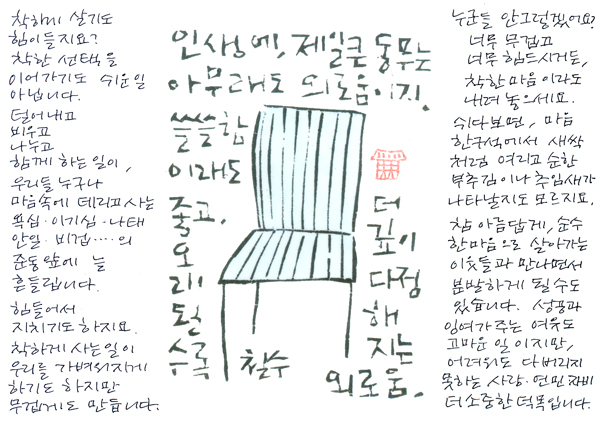 착하게 살기도
힘이들지요?
착한 선택을
이어가기도 쉬운일
아닙니다.
덜어내고
비우고
나누고
함께 하는일이,
우리들 누구나
마음속에 데리고사는
욕심·이기심·나태
안일·비겁····의
준동앞에 늘
흔들립니다.
힘들어서
지치기도하지요.
착하게 사는일이
우리를 가벼워지게
하기도 하지만
무겁게도 만듭니다.
인생에, 제일큰 동무는
아무래도 외로움이지.
쓸쓸함
이래도
줄고.
오
래
될
수록
더
깊이
다정
해
지는
외로움.
철수
누군들 안그렇겠어요?
너무 무겁고
너무 힘드시거든,
착한마음이라도
내려 놓으세요.
쉬다보면, 마음
한구석에서 새싹
처럼 여리고 순한
부추김이나 추임새가
나타날지도 모르지요.
참 아름답게, 순수
한마음으로 살아가는
이웃들과 만나면서
분발하게 될 수도
있습니다. 성공과
잉여가주는 여유도
고마운 일이지만,
어려워도 다버리지
못하는 사랑·연민·자비
더소중한덕목입니다.